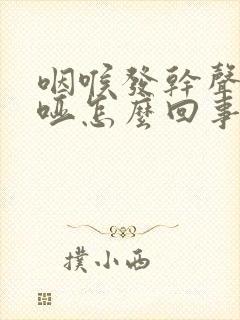 咽喉發幹聲
啞怎麼回事
撲小西